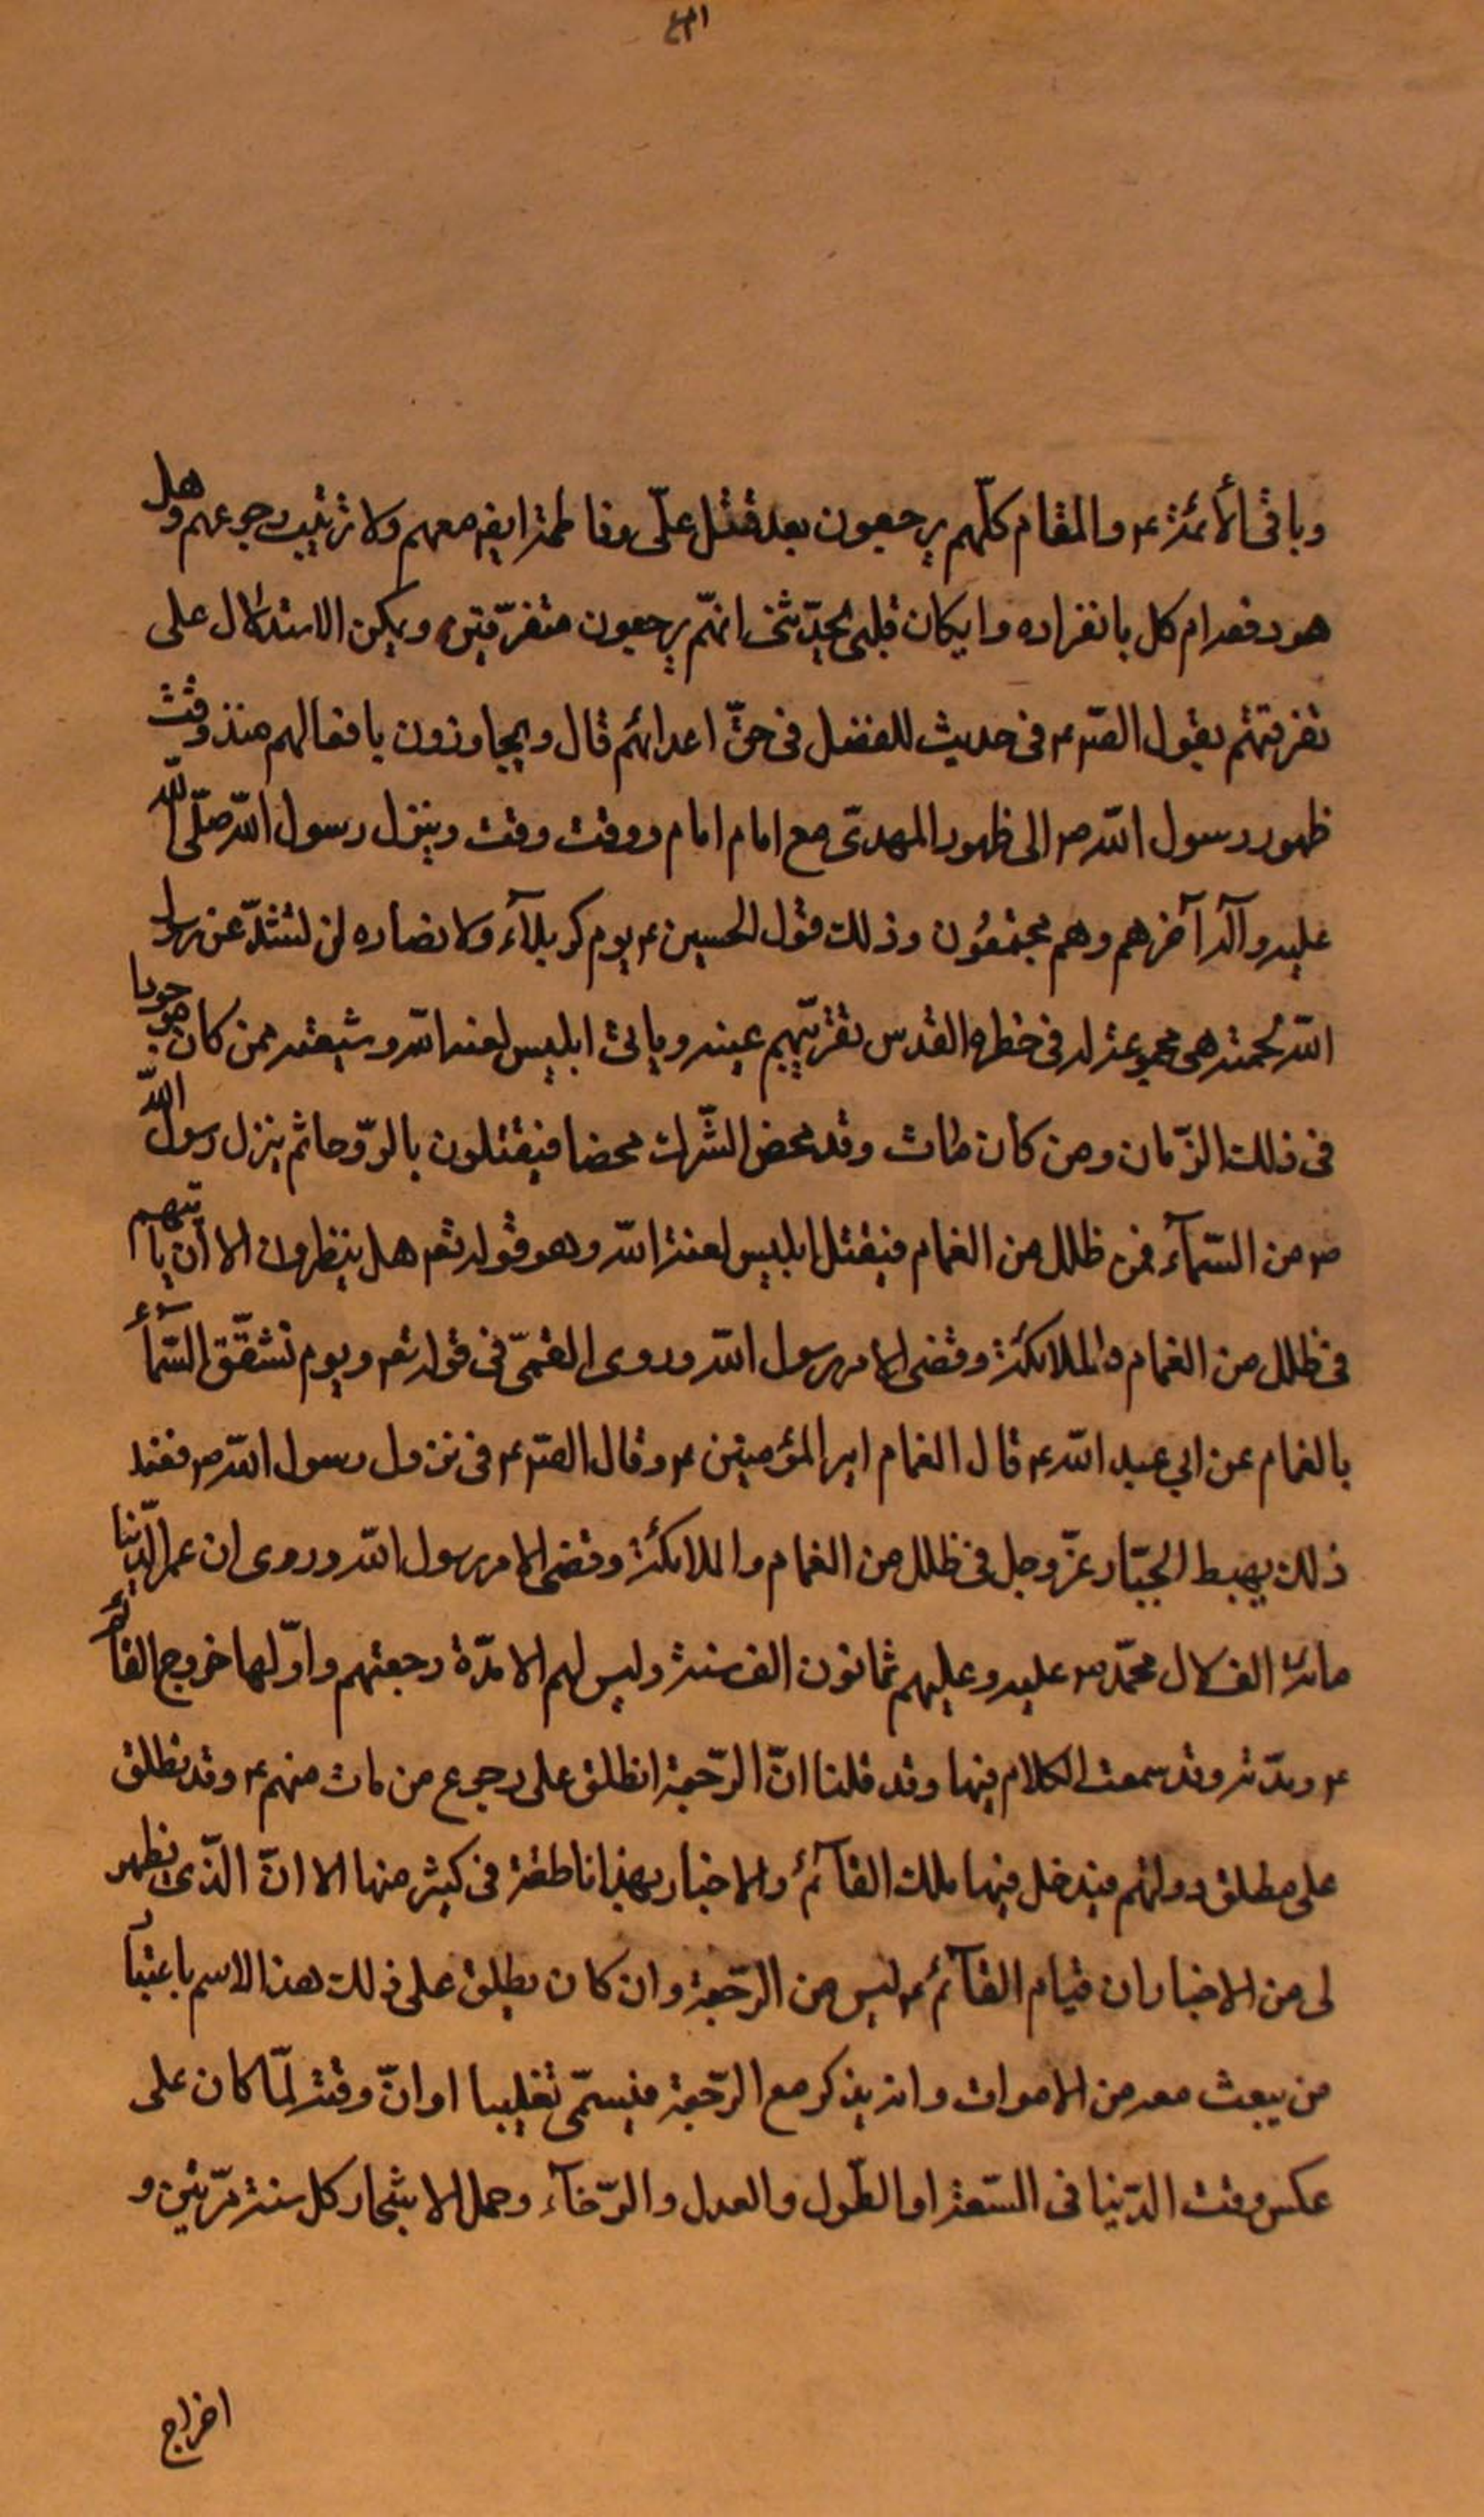 وباقى الأئمة ع والمقام كلّهم يرجعون بعد قتل علىّ وفاطمة ايض معهم ولا ترتيب رجوعهم وهل
هو دفعه ام كل بانفراده وا يكان قلبى يحدّثنى انهّم يرجعون متفرّقين ويمكن الاستدلال على
تفرقتهم بقول الصّ ع فى حديث المفضل فى حقّ اعدائهم قال ويجاوزون بافعالهم منذ وقت
ظهور رسول الله ص الى ظهور المهدىّ مع امام امام ووقت وقت وينزل رسول الله صلّى الله
عليه وآله آخرهم وهم مجتمعُون وذلك قول الحسين ع يوم كربلآء ولا نصاره لن تشذّ عن رسول
الله لُحمته هى مجموعة له فى خطره القدس تقرّ بهم عينه وياتى ابليس لعنه الله وشيعته ممن كان موجودا
فى ذلك الزّمان ومن كان مات وقد محض الشّرك محضا فيقتلون بالرّوحا ثم ينزل رسول الله
ص من السّمآء فى ظلل من الغمام فيقتل ابليس لعنة الله وهو قوله تع هل ينظرون الا أن ياتيهم
فى ظلل من الغمام والملائكة وقضى الامر رسول الله وروى القمىّ فى قوله تع ويوم تشقّق السّمآء
بالغمام عن ابي عبد الله ع قال الغمام امير المؤمنين ع وقال الصّ ع فى نزول رسول الله ص فعند
ذلك يهبط الجبّار عزّ وجل فى ظلل من الغمام والملائكة وقضى الامر رسول الله وروى ان عمر الدّنيا
مائة الف لال محمّد ص عليه وعليهم ثمانون الف سنة وليس لهم الا مدّة رجعتهم واوّلها خروج القآئم
ع ومدّته وقد سمعت الكلام فيها وقد قلنا انّ الرّجعة انطلق على رجوع من مات منهم ع وقد تطلق
على مطلق دولتهم فيدخل فيها ملك القآئم والاخبار بهذا ناطقة فى كثير منها الا انّ الذّى يظهر
لى من الاخبار ان قيام القآئم ع ليس من الرّجعة وان كان يطلق على ذلك هذا الاسم باعتبار
من يبعث معه من الاموات وانه يذكر مع الرّجعة فيسمّى تغليبا او انّ وقته لمّا كان على
عكس وقت الدّنيا فى السّعة او الطّول والعدل والرّخآء وحمل الاشجار كل سنة مرّتين و
اخراج